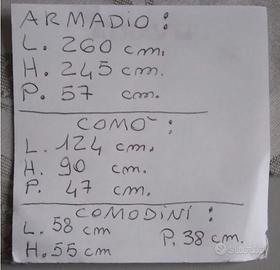 ARMADIO:
L. 260 cm.
H. 245 cm.
P. 57 cm.
COMÒ:
L. 124 cm.
H. 90 cm.
P. 47 cm.
COMODINI:
L. 58 cm
P. 38 cm.
H. 55 cm
subito